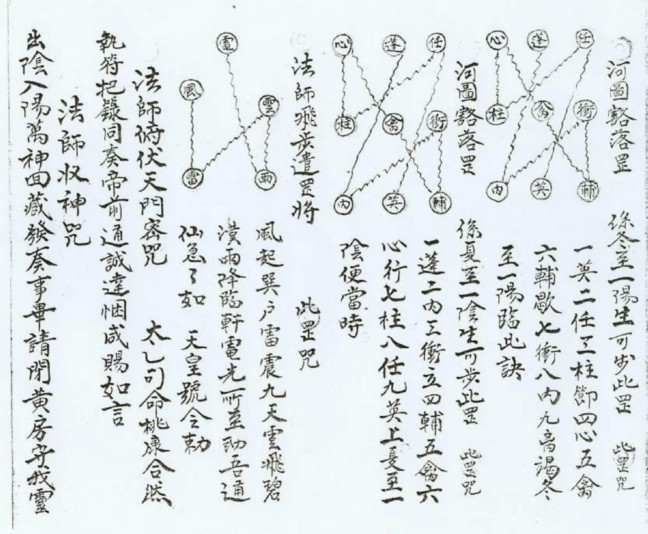 河圖豁落罡
任 蓬 心
衝 禽 柱
輔 英 內
係冬至一陽生可步此罡 此罡咒
一英二任三柱節四心五禽
六輔歇七衝八內九 謁冬
至一陽臨此訣
河圖豁落罡
任 蓬 心
衝 禽 柱
輔 英 內
係夏至一陰生可步此罡 此罡咒
一蓬二內三衝立四輔五禽六
心行七柱八任九英上夏至一
陰便當時
法師飛步遣罡將 此罡咒
雷 風 雲 雷 雨
風起巽戶雷震九天雲飛碧
漢雨降臨軒電光所至助吾通
仙急急如 天皇號令勅
法師俯伏天門密咒 太乙司命桃康合炁
執符把籙同奏帝前通誠達悃咸賜如言
法師收神咒
出陰入陽萬神回藏發奏事畢請閉黃房守我靈